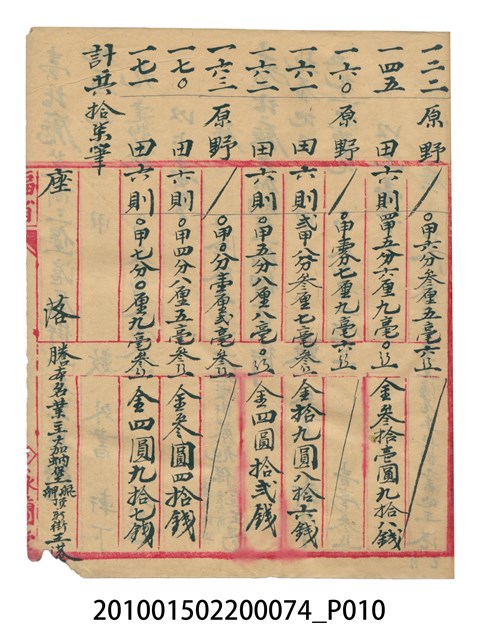 一二二 原野 / 〇甲六分叁厘五毫六
一四五 田 六則 四甲五分六厘九毫〇 金叁拾壹圓九拾八錢
一六〇 原野 / 〇甲壹分七厘九毫六
一六一 田 六則 貳甲八分叁厘七毫叁 金拾九圓八拾六錢
一六二 田 六則 〇甲五分八厘八毫〇 金四圓拾貳錢
一六三 原野 / 〇甲〇分壹厘貳毫叁
一七〇 田 六則 〇甲四分八厘五毫叁 金叁圓四拾錢
一七一 田 六則 〇甲七分〇厘九毫叁 金四圓九拾七錢
計共拾柒筆
座落 業主
201001502200074_P010